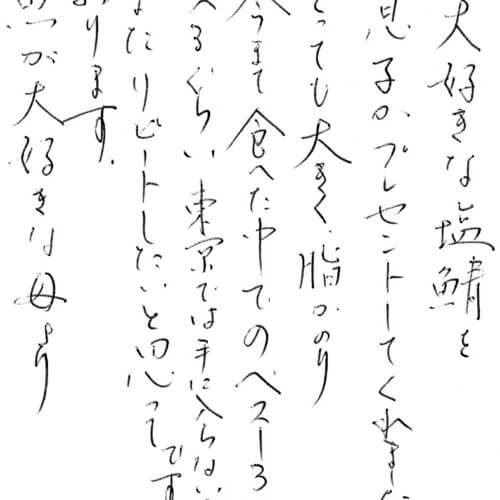 大好きな塩鯖を
息子がプレゼントしてくれました
とっても大きく、脂がのり
今まで食べた中でのベスト3
べるぐらい東京では手に入らない
またリピートしたいと思ってです
おります。
魚が大好きな母より